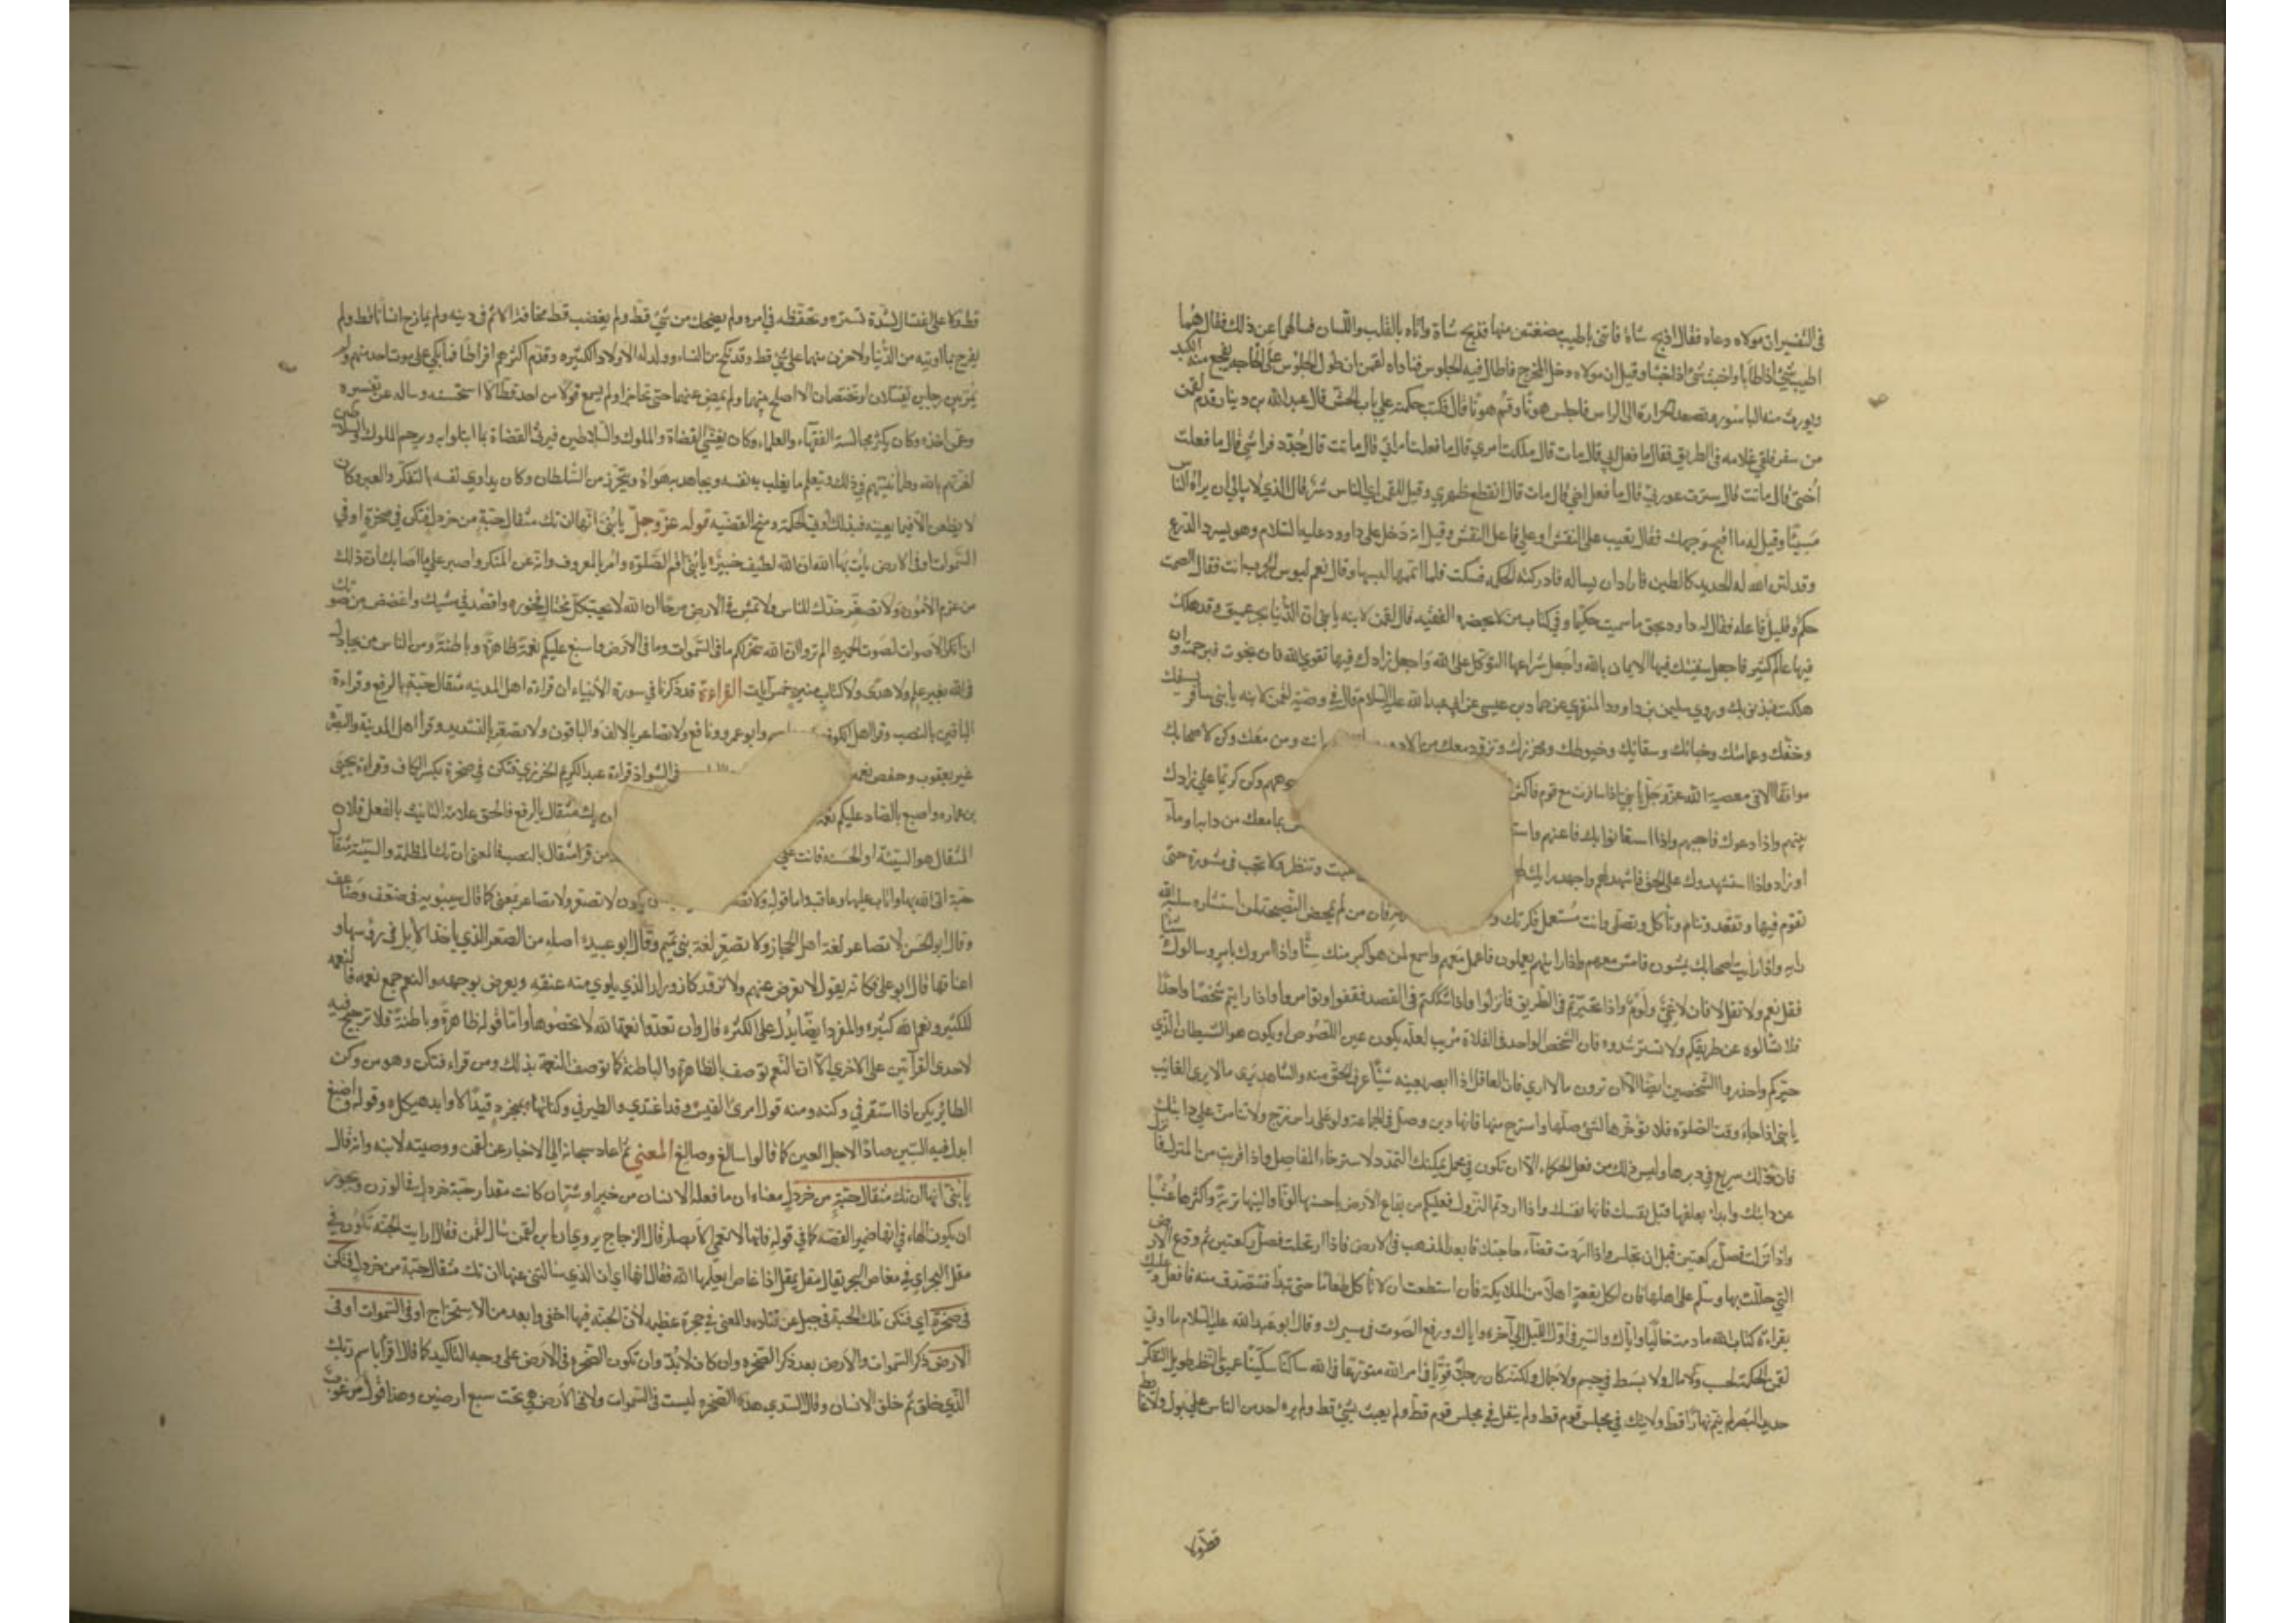 في التفسير ان مولاه دعاه فقال اذبح شاة فاتني باطيب مضغتين منها فذبح شاة واتاه بالقلب واللسان فسالهما عن ذلك فقال هما
اطيب شئ اذا طابا واخبث شئ اذا خبثا وقيل ان مولاه دخل المخرج فاطال فيه الجلوس فناداه لقمن ان طول الجلوس على الحاجة يفجع منه الكبد
ويورث منه الباسور ويصعد الحرارة الى الراس فاجلس هونا وقم هونا قال فكتب حكمته على باب الحش قال عبدالله بن دينار قدم لقمن
من سفر فلقى غلامه في الطريق فقال ما فعل ابي قال مات قال ملكت امري قال ما فعلت امراتي قال ماتت قال جدد فراشي قال ما فعلت
اختي قال ماتت قال سترت عورتي قال ما فعل اخي قال مات قال انقطع ظهري وقيل للقمن اي الناس شر قال الذي لا يبالي ان يراه الناس
مسيئا وقيل له ما اقبح وجهك فقال تعيب على النقش او على فاعل النقش وقيل انه دخل على داود عليه السلام وهو يسرد الدرع
وقد لين الله له الحديد كالطين فاراد ان يساله فادركته الحكمة فسكت فلما اتمها لبسها وقال نعم لبوس الحرب انت فقال الصمت
حكم وقليل فاعله فقال له داود بحق ما سميت حكيما وفي كتاب من لا يحضره الفقيه قال لقمن لابنه يا بني ان الدنيا بحر عميق وقد هلك
فيها عالم كثير فاجعل سفينتك فيها الايمان بالله واجعل شراعها التوكل على الله واجعل زادك فيها تقوى الله فان نجوت فبرحمة الله وان
هلكت فبذنوبك وروي سليمن بن داود المنقري عن حماد بن عيسى عن ابي عبدالله عليه السلام قال في وصية لقمن لابنه يا بنى سافر بسيفك
وخفك وعمامتك وخبائك وسقائك وخيوطك ومخرزك وتزود معك من الادوية انت ومن معك وكن لاصحابك
موافقا الا في معصية الله عز وجل يا بني اذا سافرت مع قوم فاكثر وجوههم وكن كريما على زادك
بينهم واذا دعوك فاجبهم واذا استعانوا بك فاعنهم بما معك من دابة او ماء
او زاد واذا استشهدوك على الحق فاشهد لهم واجهد رايك وتنظر ولا تجب في مشورة حتى
تقوم فيها وتقعد وتنام وتأكل وتصلى وانت مستعمل فكرتك فان من لم يمحض النصيحة لمن استشاره سلبه الله
رايه واذا رايت اصحابك يمشون فامش معهم واذا رايتهم يعملون فاعمل معهم واسمع لمن هو اكبر منك سنا واذا امروك بامر وسالوك شيئا
فقل نعم ولا تقل لا فان لا عي ولوم واذا تحيرتم في الطريق فانزلوا واذا شككتم في القصد فقفوا وتوامروا واذا رايتم شخصا واحدا
فلا تسالوه عن طريقكم ولا تسترشدوه فان الشخص الواحد في الفلاة مريب لعله يكون عين اللصوص او يكون هو الشيطان الذي
حيركم واحذروا الشخصين ايضا الا ان ترون ما لا ارى فان العاقل اذا ابصر بعينه شيئا عرف الحق منه والشاهد يرى ما لا يرى الغائب
يا بني اذا جاء وقت الصلوة فلا تؤخرها لشئ صلها واسترح منها فانها دين وصل في الجماعة ولو على راس زج ولا تنامن على دابتك
فان ذلك سريع في دبرها وليس ذلك من فعل الحكماء الا ان تكون في محمل يمكنك التمدد لاسترخاء المفاصل واذا قربت من المنزل فانزل
عن دابتك وابدا بعلفها قبل نفسك فانها نفسك واذا اردتم النزول فعليكم من بقاع الارض باحسنها لونا والينها تربة واكثرها عشبا
واذا نزلت فصل ركعتين قبل ان تجلس واذا اردت قضاء حاجتك فابعد المذهب في الارض فاذا ارتحلت فصل ركعتين ثم ودع الارض
التي حللت بها وسلم على اهلها فان لكل بقعة اهلا من الملائكة فان استطعت ان لا تأكل طعاما حتى تبدأ فتتصدق منه فافعل وعليك
بقراءة كتاب الله ما دمت خاليا واياك والسير في اول الليل الى آخره واياك ورفع الصوت في مسيرك وقال ابو عبدالله عليه السلام ما اوتي
لقمن الحكمة لحسب ولا مال ولا بسط في جسم ولا جمال ولكنه كان رجلا قويا في امر الله متورعا في الله ساكتا سكينا عميق النظر طويل التفكر
حديد البصر لم ينم نهارا قط ولا يتك في مجلس قوم قط ولم يتفل في مجلس قوم قط ولم يعبث بشئ قط ولم يره احد من الناس على بول ولا غائط
قط ولا
قط ولا على اغتسال لشدة تستره وتحفظه في امره ولم يضحك من شئ قط ولم يغضب قط مخافة الاثم في دينه ولم يمازح انسانا قط ولم
يفرح بما اوتيه من الدنيا ولا حزن منها على شئ قط وقد نكح من النساء وولد له الاولاد الكثيره وقدم اكثرهم افراطا فما بكي على موت احد منهم ولم
يمر بين رجلين يقتتلان او يختصمان الا اصلح بينهما ولم يمض عنهما حتى تحاجزا ولم يسمع قولا من احد قط الا استحسنه وساله عن تفسيره
وعمن اخذه وكان يكثر مجالسة الفقهاء والعلماء وكان يغشي القضاة والملوك والسلاطين فيرثى القضاة بما ابتلوا به ويرحم الملوك والسلاطين
لغرتهم بالله وطمأنينتهم في ذلك ويتعلم ما يغلب به نفسه ويجاهد به هواه ويحترز من السلطان وكان يداوي نفسه بالتفكر والعبر وكان
لا يظعن الا فيما يعينه فبذلك اوتي الحكمة ومنح القضيه قوله عز وجل يا بني انها ان تك مثقال حبة من خردل فتكن في صخرة او في
السموات او في الارض يأت بها الله ان الله لطيف خبير يا بني اقم الصلوة وامر بالمعروف وانه عن المنكر واصبر على ما اصابك ان ذلك
من عزم الامور ولا تصعر خدك للناس ولا تمش في الارض مرحا ان الله لا يحب كل مختال فخور واقصد في مشيك واغضض من صوتك
ان انكر الاصوات لصوت الحمير الم تروا ان الله سخر لكم ما في السموات وما في الارض واسبغ عليكم نعمة ظاهرة وباطنة ومن الناس من يجادل
في الله بغير علم ولا هدى ولا كتاب منير خمس آيات القراءة قد ذكرنا في سورة الأنبياء ان قراءة اهل المدينه مثقال حبة بالرفع وقراءة
الباقين بالنصب وقرا اهل الكوفة وابو عمرو ونافع ولا تصاعر بالالف والباقون ولا تصعر بالتشديد وقرأ اهل المدينة والبصرة
غير يعقوب وحفص نعمه في الشواذ قراءة عبد الكريم الجزري فتكن في صخرة بكسر الكاف وقراءة يحيى
بن عماره واصبغ بالصاد عليكم نعمة ان تك مثقال بالرفع فالحق علامة التانيث بالفعل فلان
المثقال هو السيئة او الحسنة فانث على من قرا مثقال بالنصب فالمعنى ان تك المظلمة والسيئة مثقال
حبة اتى الله بها واثاب عليها وعاقب واما قوله ولا تصعر يكون لا تصعر ولا تصاعر بمعنى كما قال سيبويه في ضعف وضاعف
وقال ابو الحسن لا تصاعر لغة اهل الحجاز ولا تصعر لغة بني تميم وقال ابو عبيدة اصله من الصعر الذي يأخذ الابل في رؤسها او
اعناقها قال ابو علي فكانه يقول لا تعرض عنهم ولا تزور كازورار الذي يلوي منه عنقه ويعرض بوجهه والنعم جمع نعمه فالنعمه
للكثير ونعم الله كثيرة والمفرد ايضا يدل على الكثره قال وان تعدوا نعمة الله لا تحصوها واما قوله ظاهرة وباطنة فلا ترجيح فيه
لاحدى القرآتين على الاخرى الا ان النعم توصف بالظاهرة والباطنة كما توصف النعمة بذلك ومن قراء فتكن وهو من وكن
الطائر يكن اذا استقر في وكنه ومنه قول امرئ القيس وقد اغتدي والطير في وكناتها بمنجرد قيد الاوابد هيكل وقوله واصبغ
ابدل فيه السين صادا لاجل الغين كما قالوا سالغ وصالغ المعني ثم اعاد سبحانه الى الاخبار عن لقمن ووصيته لابنه وانه قال
يا بني انها ان تك مثقال حبة من خردل معناه ان ما فعله الانسان من خير او شر ان كانت مقدار حبة خردل في الوزن ويجوز
ان يكون الهاء في انها ضمير القصه كما في قوله فانها لا تعمى الابصار قال الزجاج يروي ان ابن لقمن سال لقمن فقال ارايت الحبة تكون في
مقل البحر اي في مغاص البحر يقال مقل يمقل اذا غاص ايعلمها الله فقال انها اي ان الذي سالتني عنها ان تك مثقال حبة من خردل فتكن
في صخرة اي فتكن تلك الحبة في جبل عن قتاده والمعنى في حجرة عظيمه لان الحبة فيها اخفى وابعد من الاستخراج او في السموات او في
الارض ذكر السموات والارض بعد ذكر الصخره وان كان لا بد وان تكون الصخره في الارض على وجه التأكيد كما قال اقرأ باسم ربك
الذي خلق ثم خلق الانسان وقال السدي هذه الصخره ليست في السموات ولا في الارض هي تحت سبع ارضين وهذا قول مرغوب